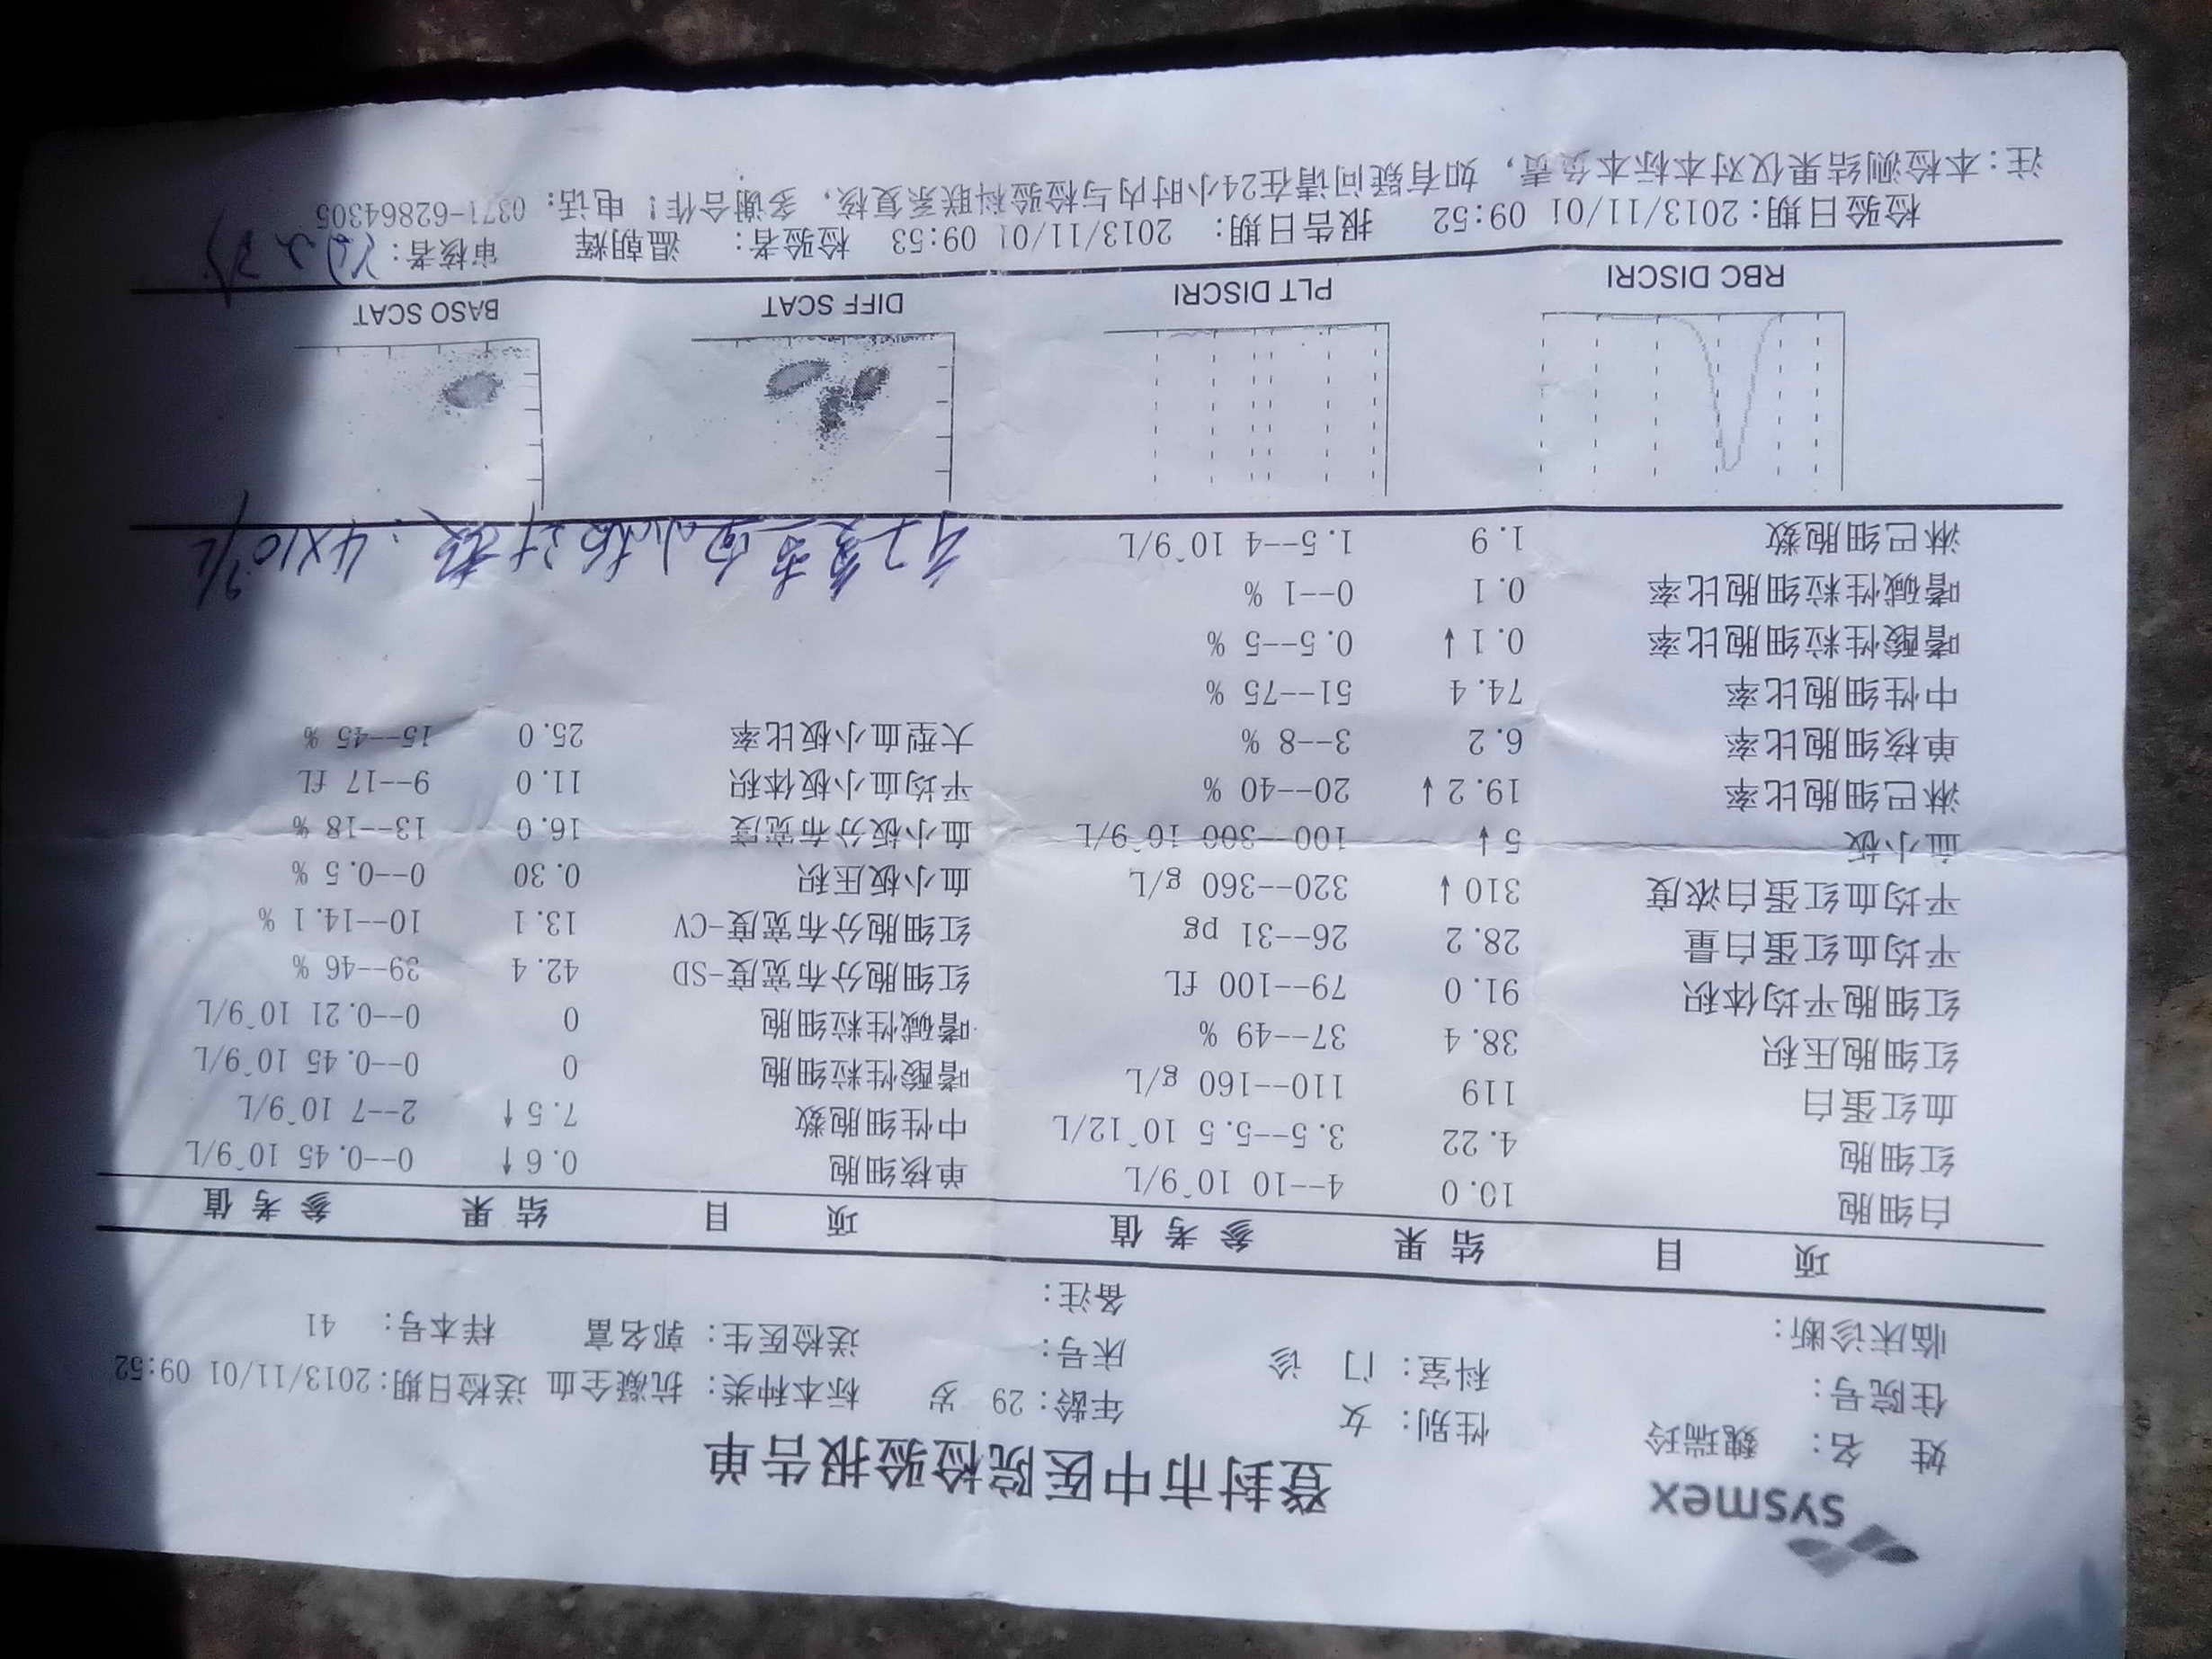 sysmex
登封市中医院检验报告单
姓 名: 魏瑞玲 性别: 女 年龄: 29 岁 标本种类: 抗凝全血 送检日期:2013/11/01 09:52
住院号: 科室: 门 诊 床号: 送检医生: 郭名富 样本号: 41
临床诊断: 备注:
项 目 结 果 参 考 值 项 目 结 果 参 考 值
白细胞 10.0 4--10 10^9/L 单核细胞 0.6↑ 0--0.45 10^9/L
红细胞 4.22 3.5--5.5 10^12/L 中性细胞数 7.5↑ 2--7 10^9/L
血红蛋白 119 110--160 g/L 嗜酸性粒细胞 0 0--0.45 10^9/L
红细胞压积 38.4 37--49 % 嗜碱性粒细胞 0 0--0.21 10^9/L
红细胞平均体积 91.0 79--100 fL 红细胞分布宽度-SD 42.4 39--46 %
平均血红蛋白量 28.2 26--31 pg 红细胞分布宽度-CV 13.1 10--14.1 %
平均血红蛋白浓度 310↓ 320--360 g/L 血小板压积 0.30 0--0.5 %
血小板 5↓ 100--300 10^9/L 血小板分布宽度 16.0 13--18 %
淋巴细胞比率 19.2↓ 20--40 % 平均血小板体积 11.0 9--17 fL
单核细胞比率 6.2 3--8 % 大型血小板比率 25.0 15--45 %
中性细胞比率 74.4 51--75 %
嗜酸性粒细胞比率 0.1↓ 0.5--5 %
嗜碱性粒细胞比率 0.1 0--1 %
淋巴细胞数 1.9 1.5--4 10^9/L
血小板计数: 4×10^9/L
RBC DISCRI PLT DISCRI DIFF SCAT BASO SCAT
检验日期:2013/11/01 09:52 报告日期: 2013/11/01 09:53 检验者: 温朝辉 审核者:
注:本检测结果仅对本标本负责，如有疑问请在24小时内与检验科联系复核，多谢合作！电话: 0371-62864305